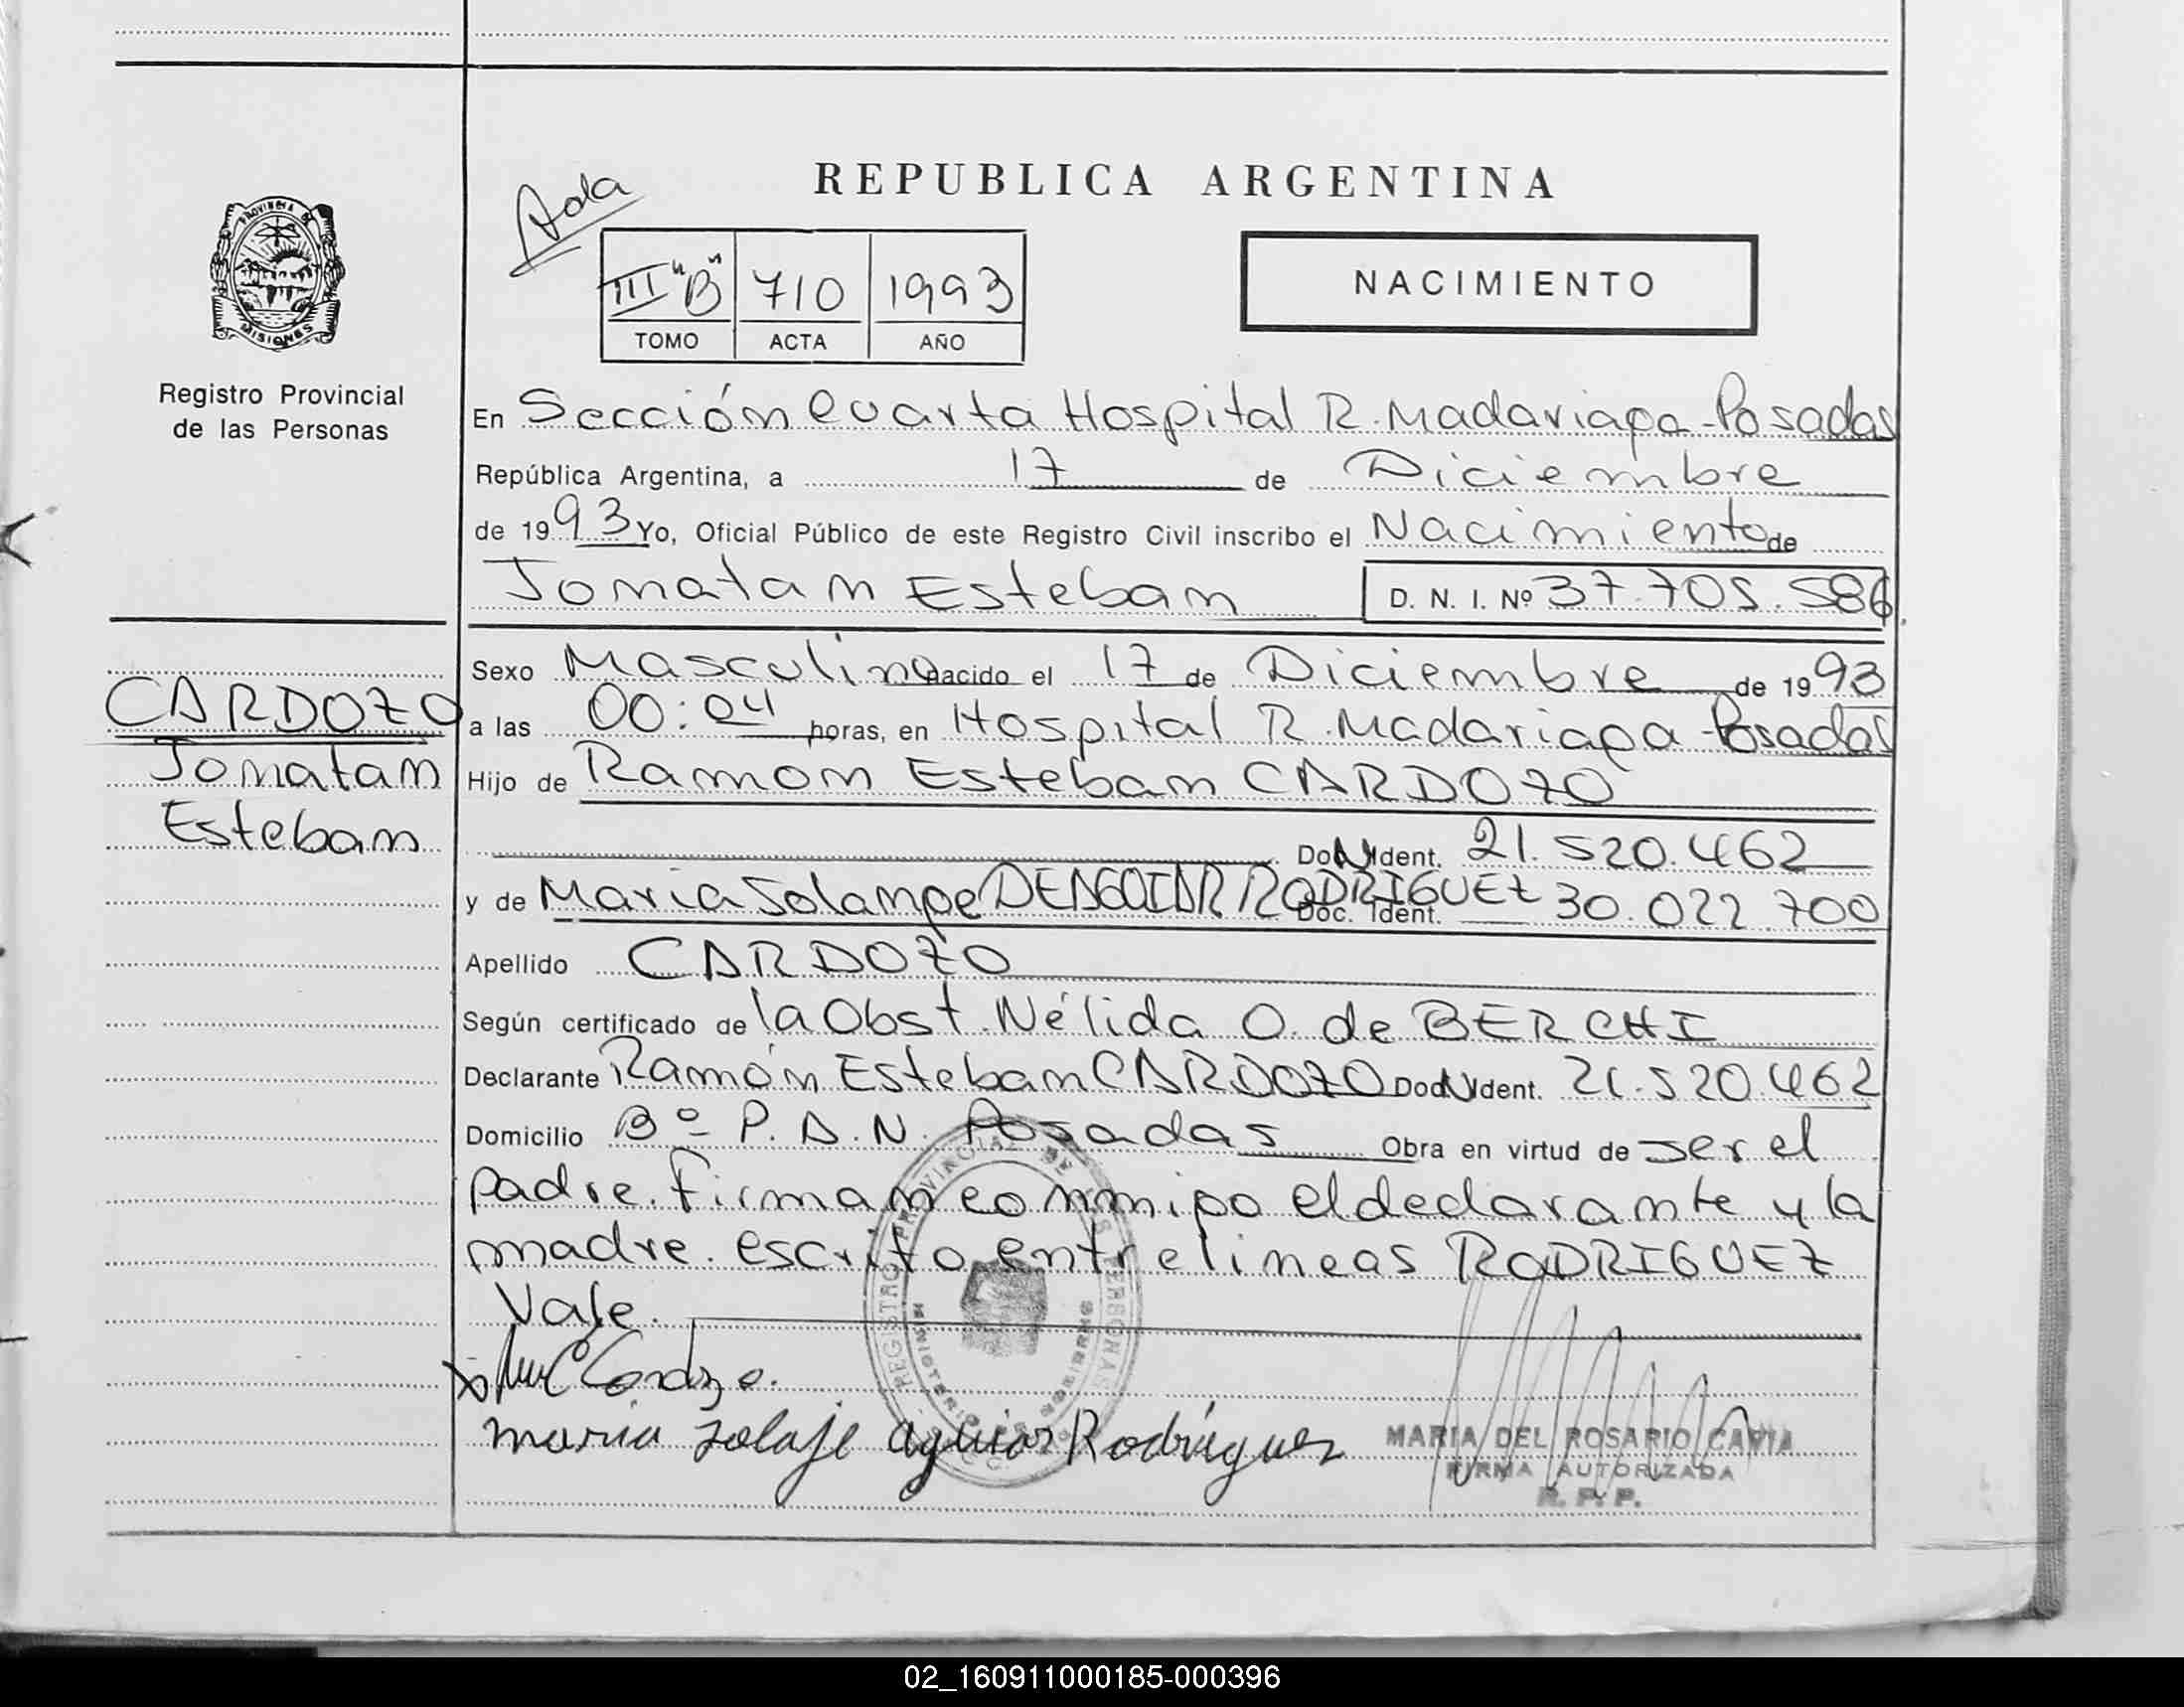 REPUBLICA ARGENTINA
NACIMIENTO
III "B" 710 1993
TOMO ACTA AÑO
PROVINCIA DE
MISIONES
Registro Provincial
de las Personas
En Sección Cuarta Hospital R. Madariaga - Posadas
República Argentina, a 17 de Diciembre
de 1993 Yo, Oficial Público de este Registro Civil inscribo el Nacimiento de
Jonatan Esteban D. N. I. Nº 37.705.586
CARDOZO
Jonatan
Esteban
Sexo Masculino nacido el 17 de Diciembre de 1993
a las 00:04 horas, en Hospital R. Madariaga - Posadas
Hijo de Ramon Esteban CARDOZO
Doc. Ident. 21.520.462
y de Maria Solange DE AGUIAR RODRIGUEZ Doc. Ident. 30.022.700
Apellido CARDOZO
Según certificado de la Obst. Nélida O. de BERCHI
Declarante Ramón Esteban CARDOZO Doc. Ident. 21.520.462
Domicilio Bº P.A.N. Posadas Obra en virtud de ser el
padre. Firman conmigo el declarante y la
madre. escrito entrelineas RODRIGUEZ
Vale.
REGISTRO PROVINCIAL DE LAS PERSONAS
MINISTERIO
Cardozo.
maria solaje aguiar Rodriguez
MARIA DEL ROSARIO CAVIA
FIRMA AUTORIZADA
R. P. P.
02_160911000185-000396